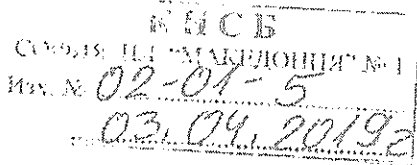 КНСБ
СОФИЯ, ПЛ. "МАКЕДОНИЯ" № 1
Изх. № 02-01-5
03.04.2019г